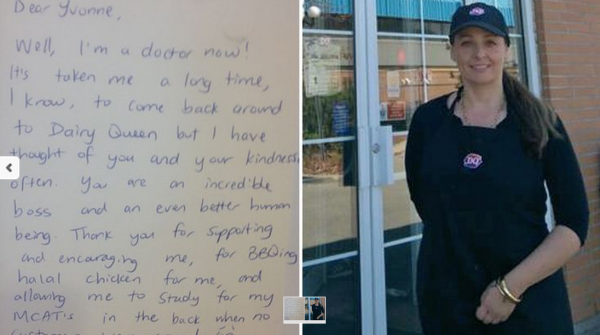 Dear Yvonne,
Well, I'm a doctor now!
It's taken me a long time,
I know, to come back around
to Dairy Queen but I have
thought of you and your kindness
often. You are an incredible
boss and an even better human
being. Thank you for supporting
and encouraging me, for BBQing
halal chicken for me, and
allowing me to study for my
MCAT's in the back when no
DQ
DQ